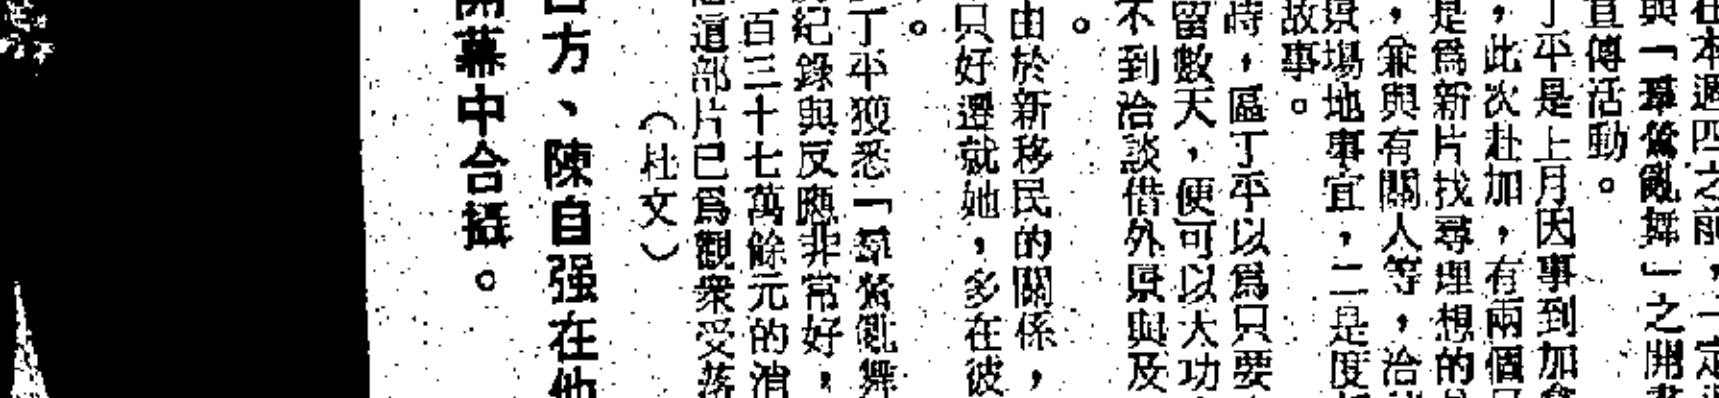 在本週四之前，一定
與「羣鶯亂舞」之開
宣傳活動。
丁平是上月因事到加拿
，此次赴加，有兩個
是爲新片找尋理想的
，兼與有關人等，洽
景場地事宜，二是度
故事。
時，區丁平以爲只要
留數天，便可以大功
不到洽談借外景與及
。
由於新移民的關係，
只好遷就她，多在彼
。
丁平獲悉「羣鶯亂舞
紀錄與反應非常好，
百三十七萬餘元的消
這部片已爲觀衆受落
（杜文）
方、陳自强在他
開幕中合攝。